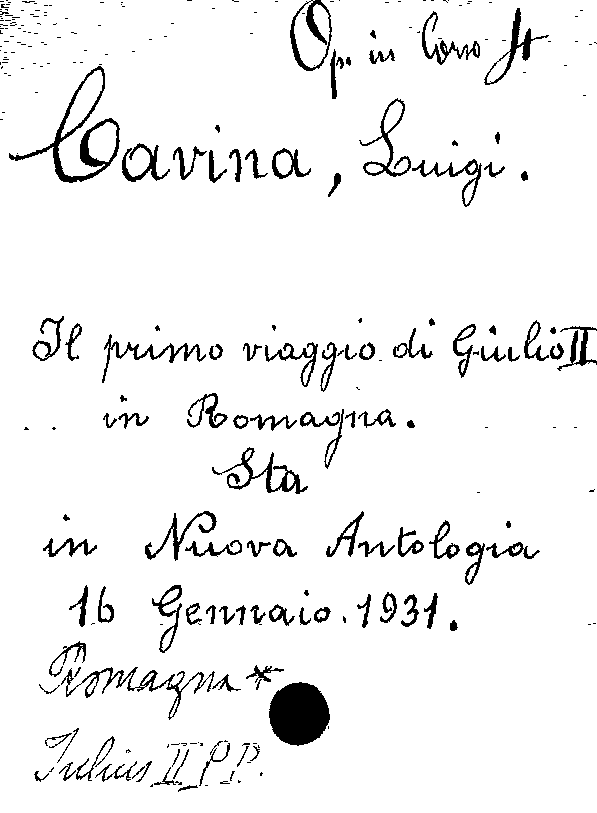 Op. in Corso It
Cavina, Luigi.
Il primo viaggio di Giulio II
in Romagna.
Sta
in Nuova Antologia
16 Gennaio. 1931.
Romagna *
Iulius II P.P.